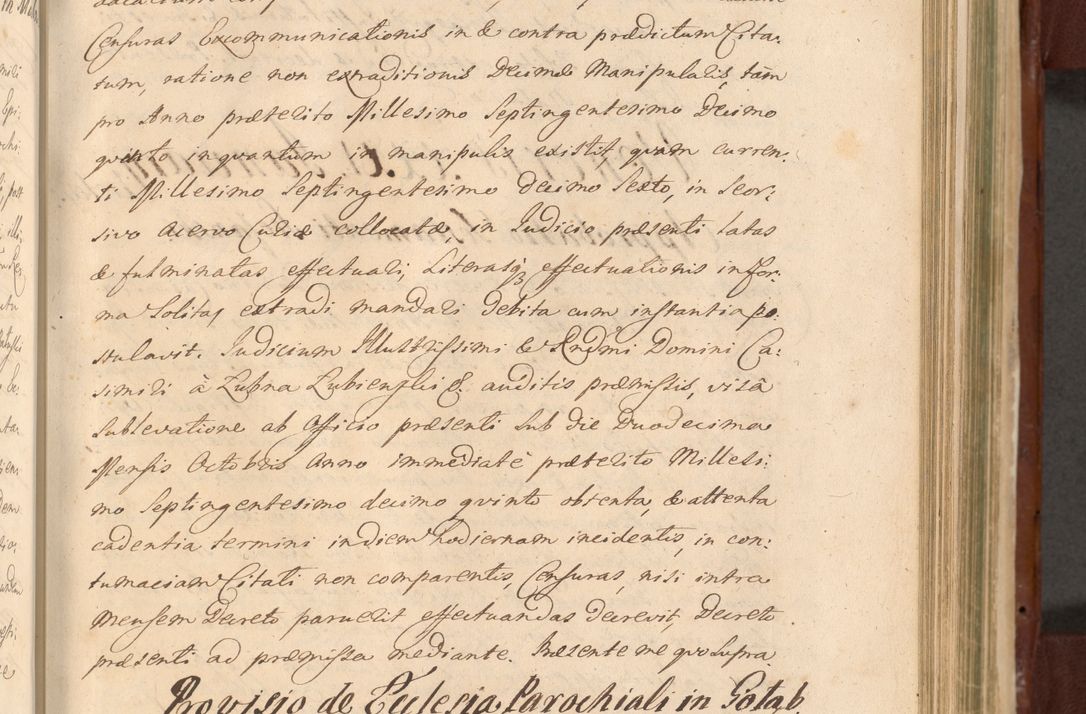 Censuras Excommunicationis in & contra prædictum Cita:
tum, ratione non extraditionis Decimæ Manipulalis, tàm
pro Anno præterito Millesimo Septingentesimo Decimo
quinto inquantum in manipulis existit, quàm curren:
ti Millesimo Septingentesimo decimo Sexto, in Seor:
sivo Acervo Curiæ collocatæ, in Judicio præsenti latas
& fulminatas effectuari, Literasq; effectuationis in for:
ma Solita, extradi mandari debita cum instantia po:
stulavit. Judicium Illustrissimi & Rndmi Domini Ca:
simiri à Lubna Lubienski &. auditis præmissis, visâ
Sublevatione ab Officio præsenti sub die Duodecima
Mensis Octobris Anno immediatè præterito Millesi:
mo Septingentesimo decimo quinto obtenta, & attenta
cadentia termini in diem hodiernam incidentis, in con:
tumaciam Citati non comparentis, Censuras, nisi intra
Mensem Decreto paruerit effectuandas decrevit, Decreto
præsenti ad præmissa mediante. Præsente me quo supra
Provisio de Ecclesia Parochiali in Gołąb.